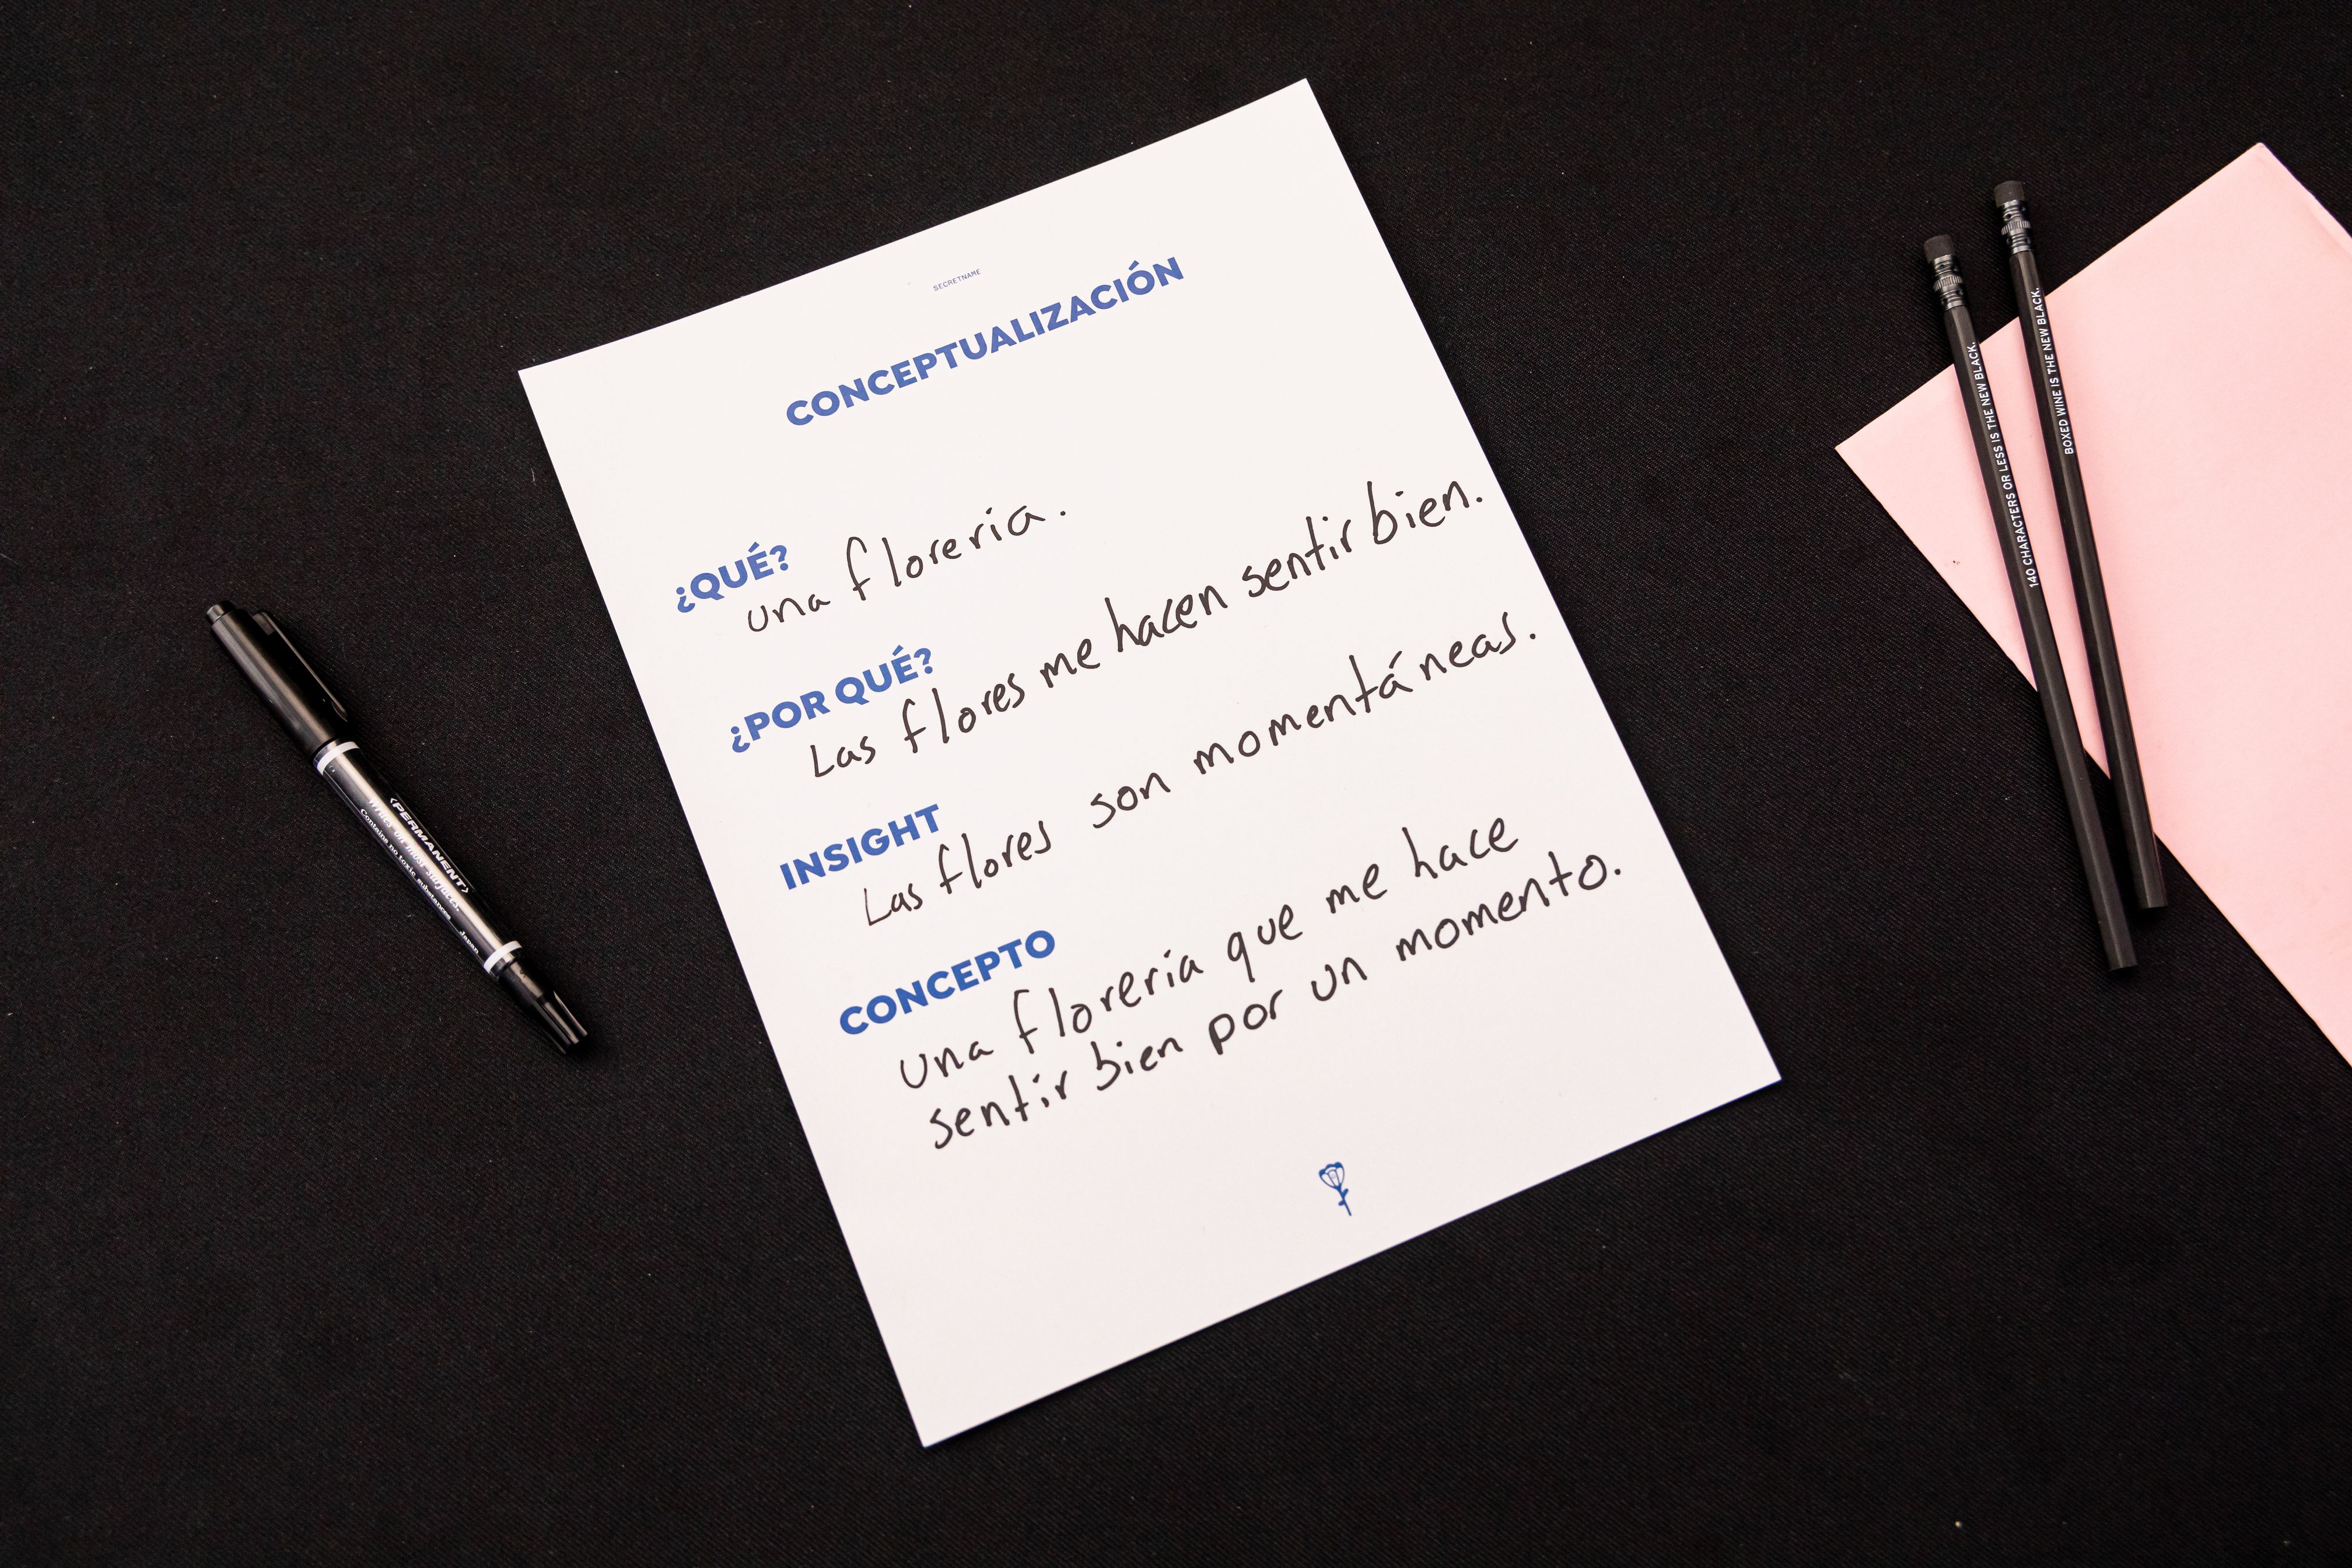 SECRETNAME
CONCEPTUALIZACIÓN
¿QUÉ?
una florería.
¿POR QUÉ?
Las flores me hacen sentir bien.
INSIGHT
Las flores son momentáneas.
CONCEPTO
una florería que me hace
sentir bien por un momento.
<PERMANENT>
Writes on most surfaces.
Contains no toxic substances. Japan
140 CHARACTERS OR LESS IS THE NEW BLACK.
BOXED WINE IS THE NEW BLACK.